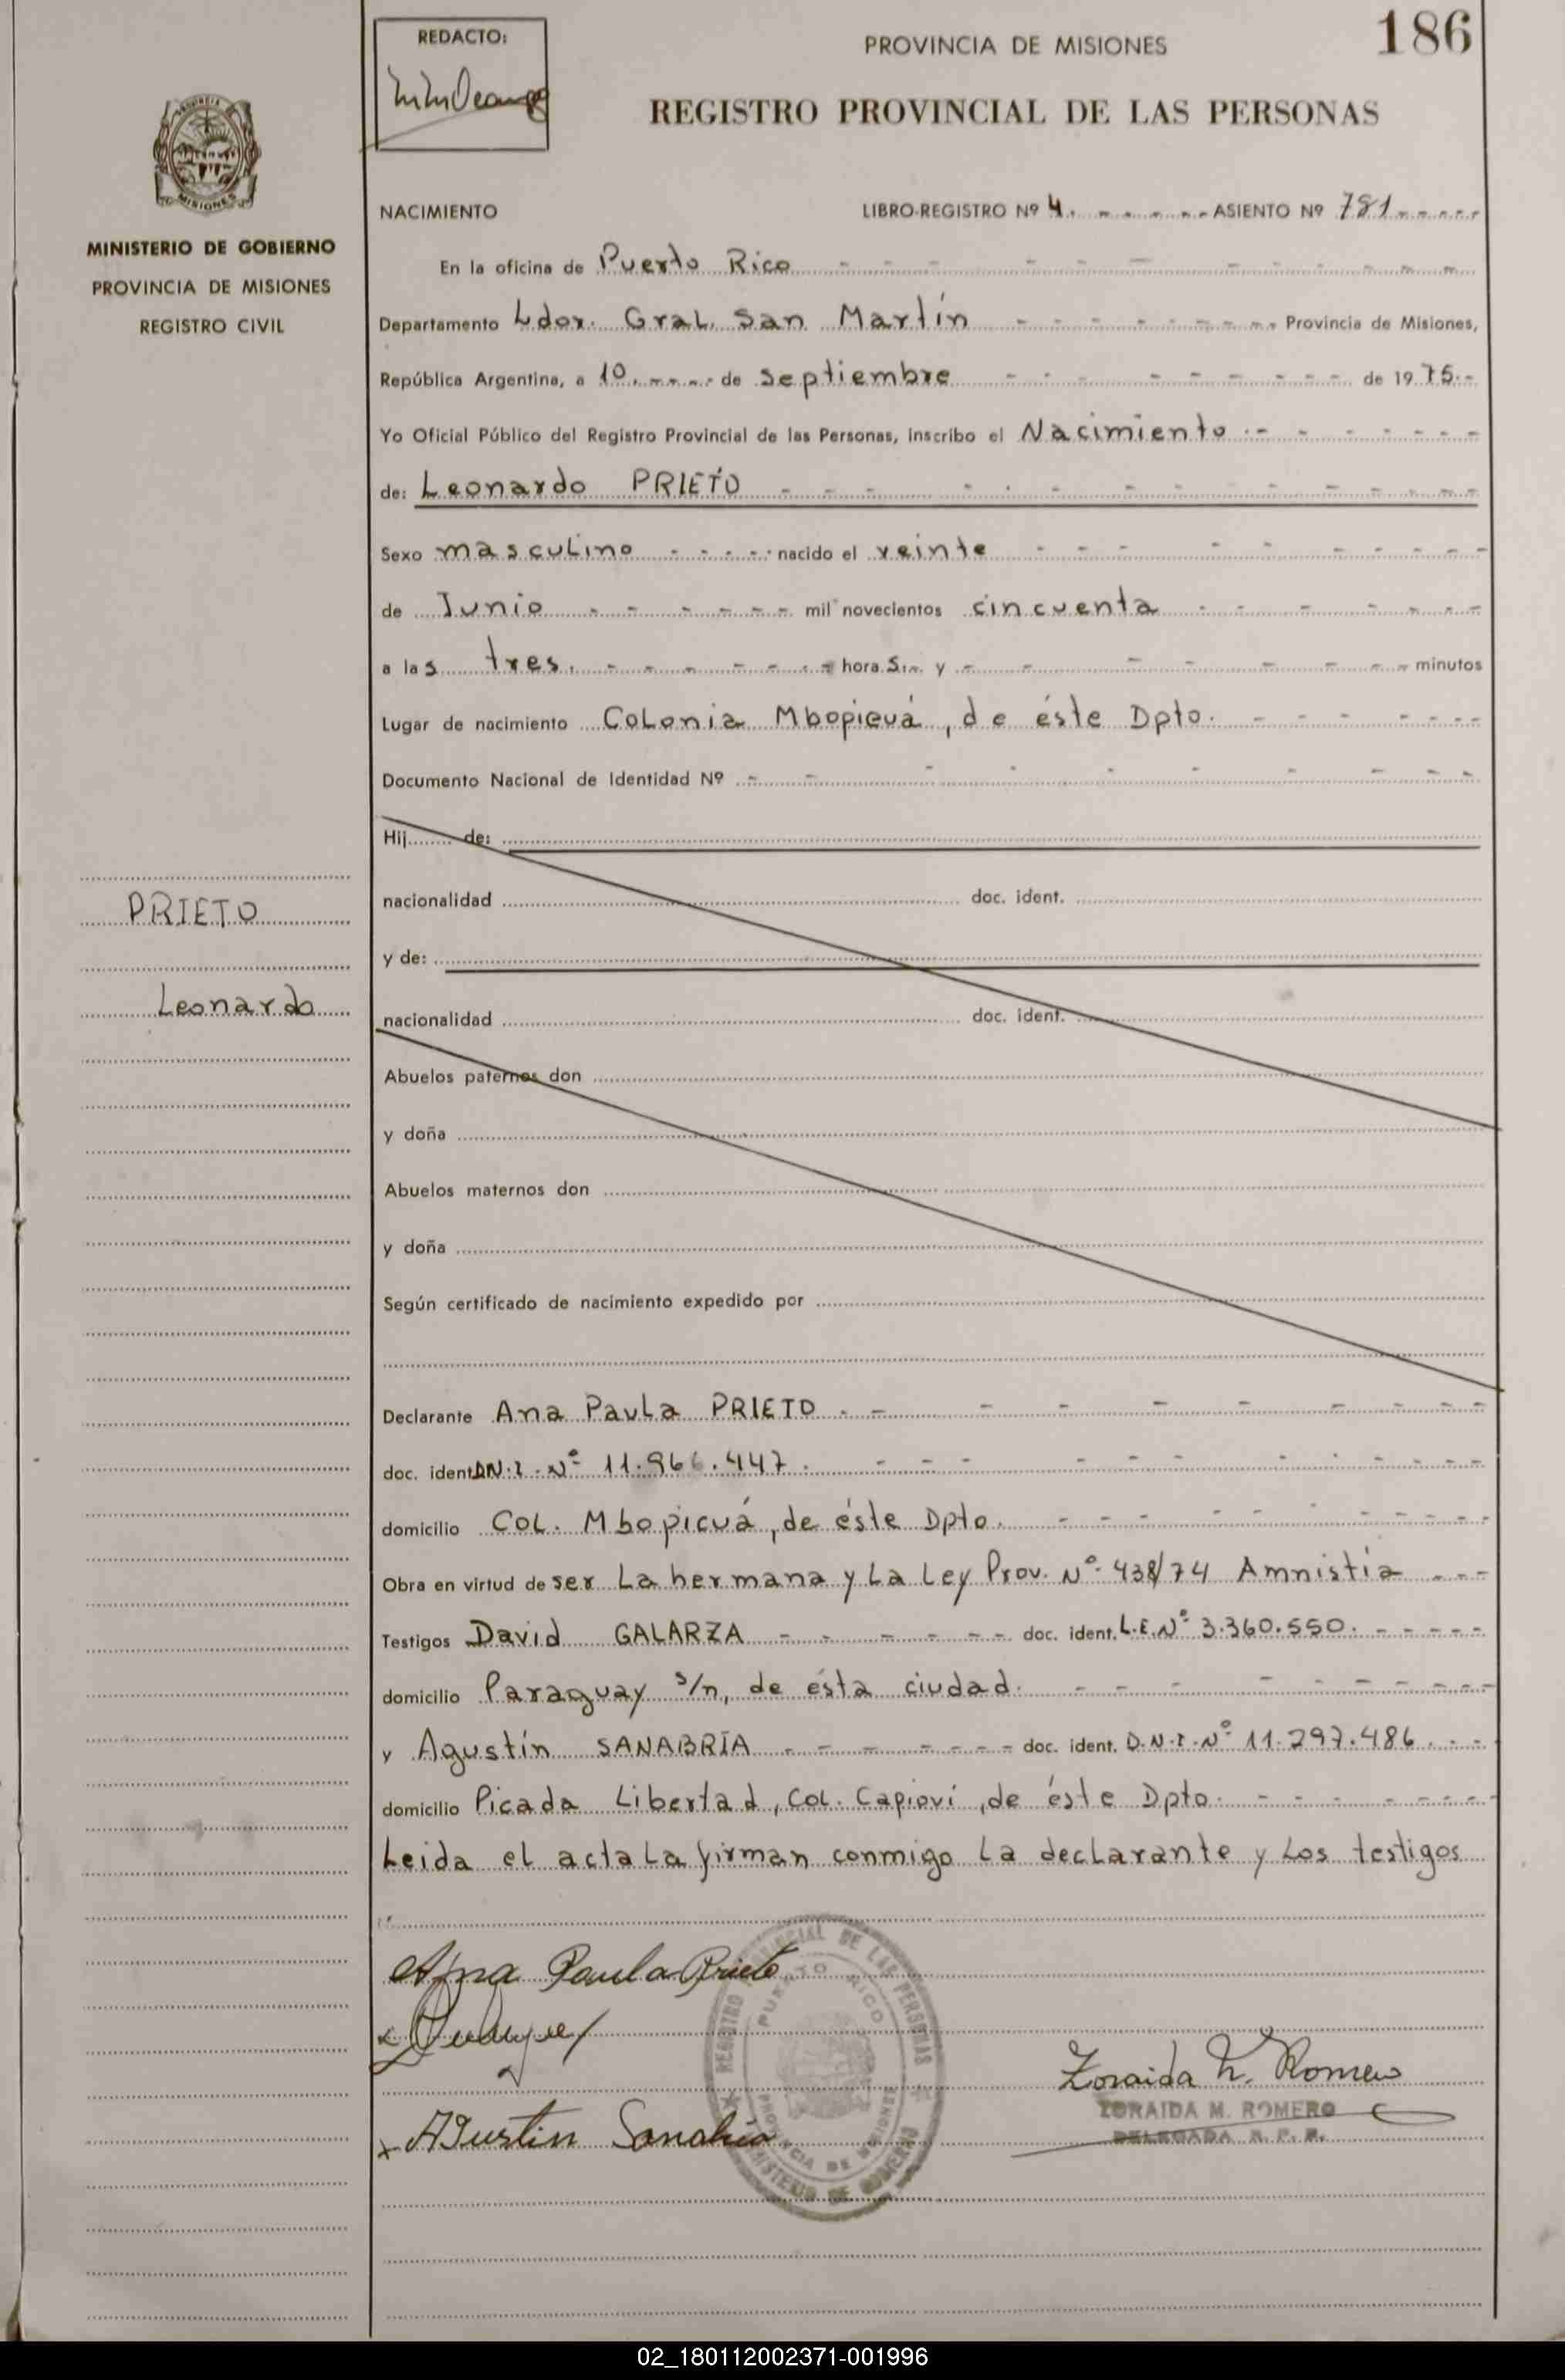 186
REDACTO:
PROVINCIA DE MISIONES
REGISTRO PROVINCIAL DE LAS PERSONAS
MISIONES
MINISTERIO DE GOBIERNO
PROVINCIA DE MISIONES
REGISTRO CIVIL
NACIMIENTO LIBRO-REGISTRO Nº 4. ASIENTO Nº 781
En la oficina de Puerto Rico
Departamento Ldor. Gral. San Martín Provincia de Misiones,
República Argentina, a 10 de septiembre de 1975.-
Yo Oficial Público del Registro Provincial de las Personas, inscribo el Nacimiento
de: Leonardo PRIETO
Sexo masculino nacido el veinte
de Junio mil novecientos cincuenta
a las tres. horas y minutos
Lugar de nacimiento Colonia Mbopicuá, de éste Dpto.
Documento Nacional de Identidad Nº
Hij de:
nacionalidad doc. ident.
y de:
nacionalidad doc. ident.
Abuelos paternos don
y doña
Abuelos maternos don
y doña
Según certificado de nacimiento expedido por
PRIETO
Leonardo
Declarante Ana Paula PRIETO
doc. ident D.N.I. Nº 11.966.447.
domicilio Col. Mbopicuá, de éste Dpto.
Obra en virtud de ser la hermana y la Ley Prov. Nº 438/74 Amnistía
Testigos David GALARZA doc. ident. L.E. Nº 3.360.550.
domicilio Paraguay s/n, de ésta ciudad.
y Agustín SANABRIA doc. ident. D.N.I. Nº 11.297.486.
domicilio Picada Libertad, Col. Capioví, de éste Dpto.
Leida el acta la firman conmigo la declarante y los testigos
Ana Paula Prieto
Agustin Sanabria
REGISTRO PROVINCIAL DE LAS PERSONAS
PUERTO RICO
PROVINCIA DE MISIONES
MINISTERIO DE GOBIERNO
Zoraida M. Romero
ZORAIDA M. ROMERO
DELEGADA R. P. P.
02_180112002371-001996